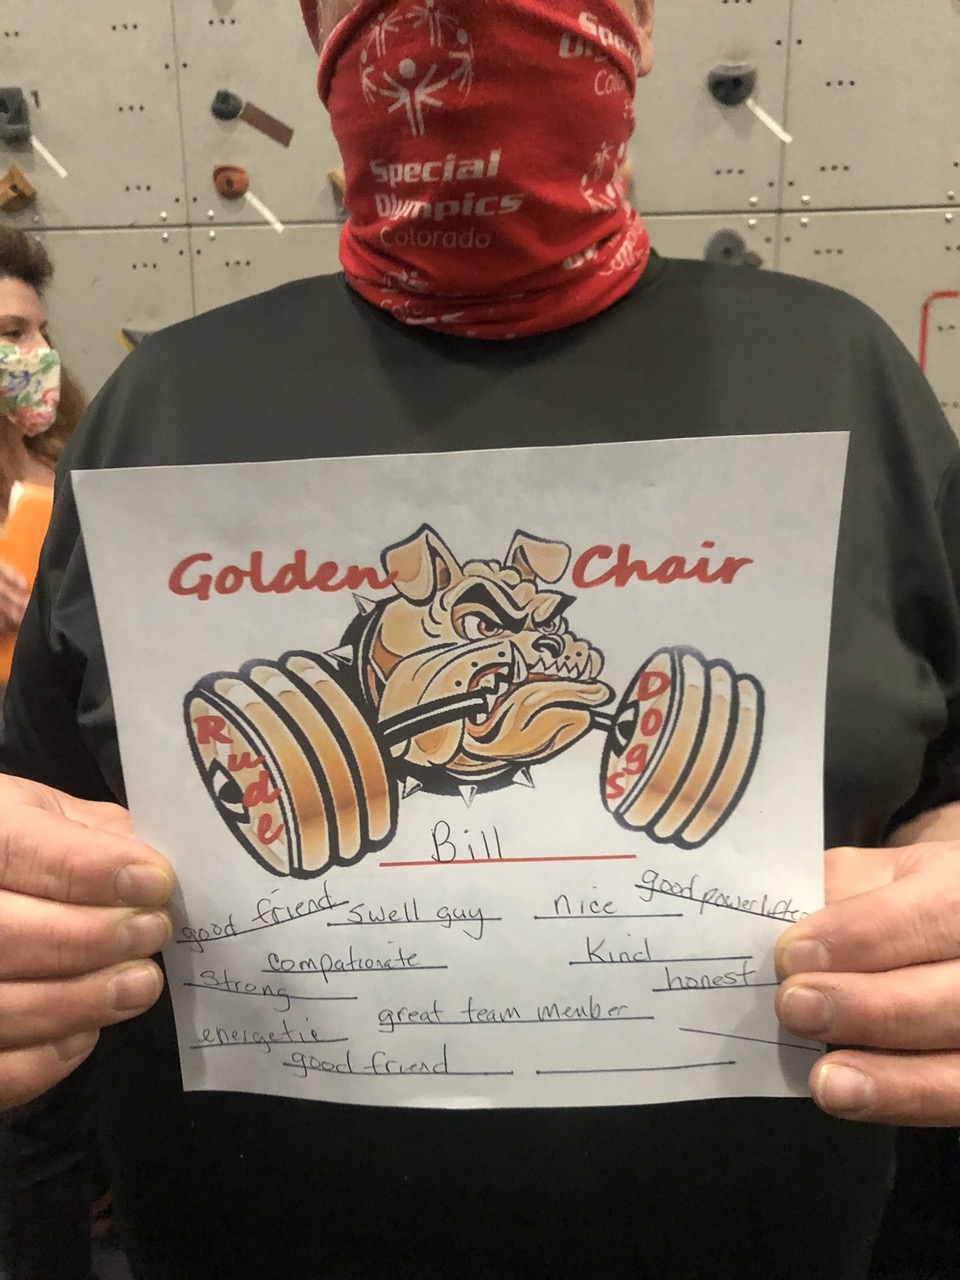 Special
Olympics
Colorado
Golden Chair
Rude
Dogs
Bill
good friend swell guy nice good powerlifte
compationate Kind
strong honest
great team member
energetic
good friend